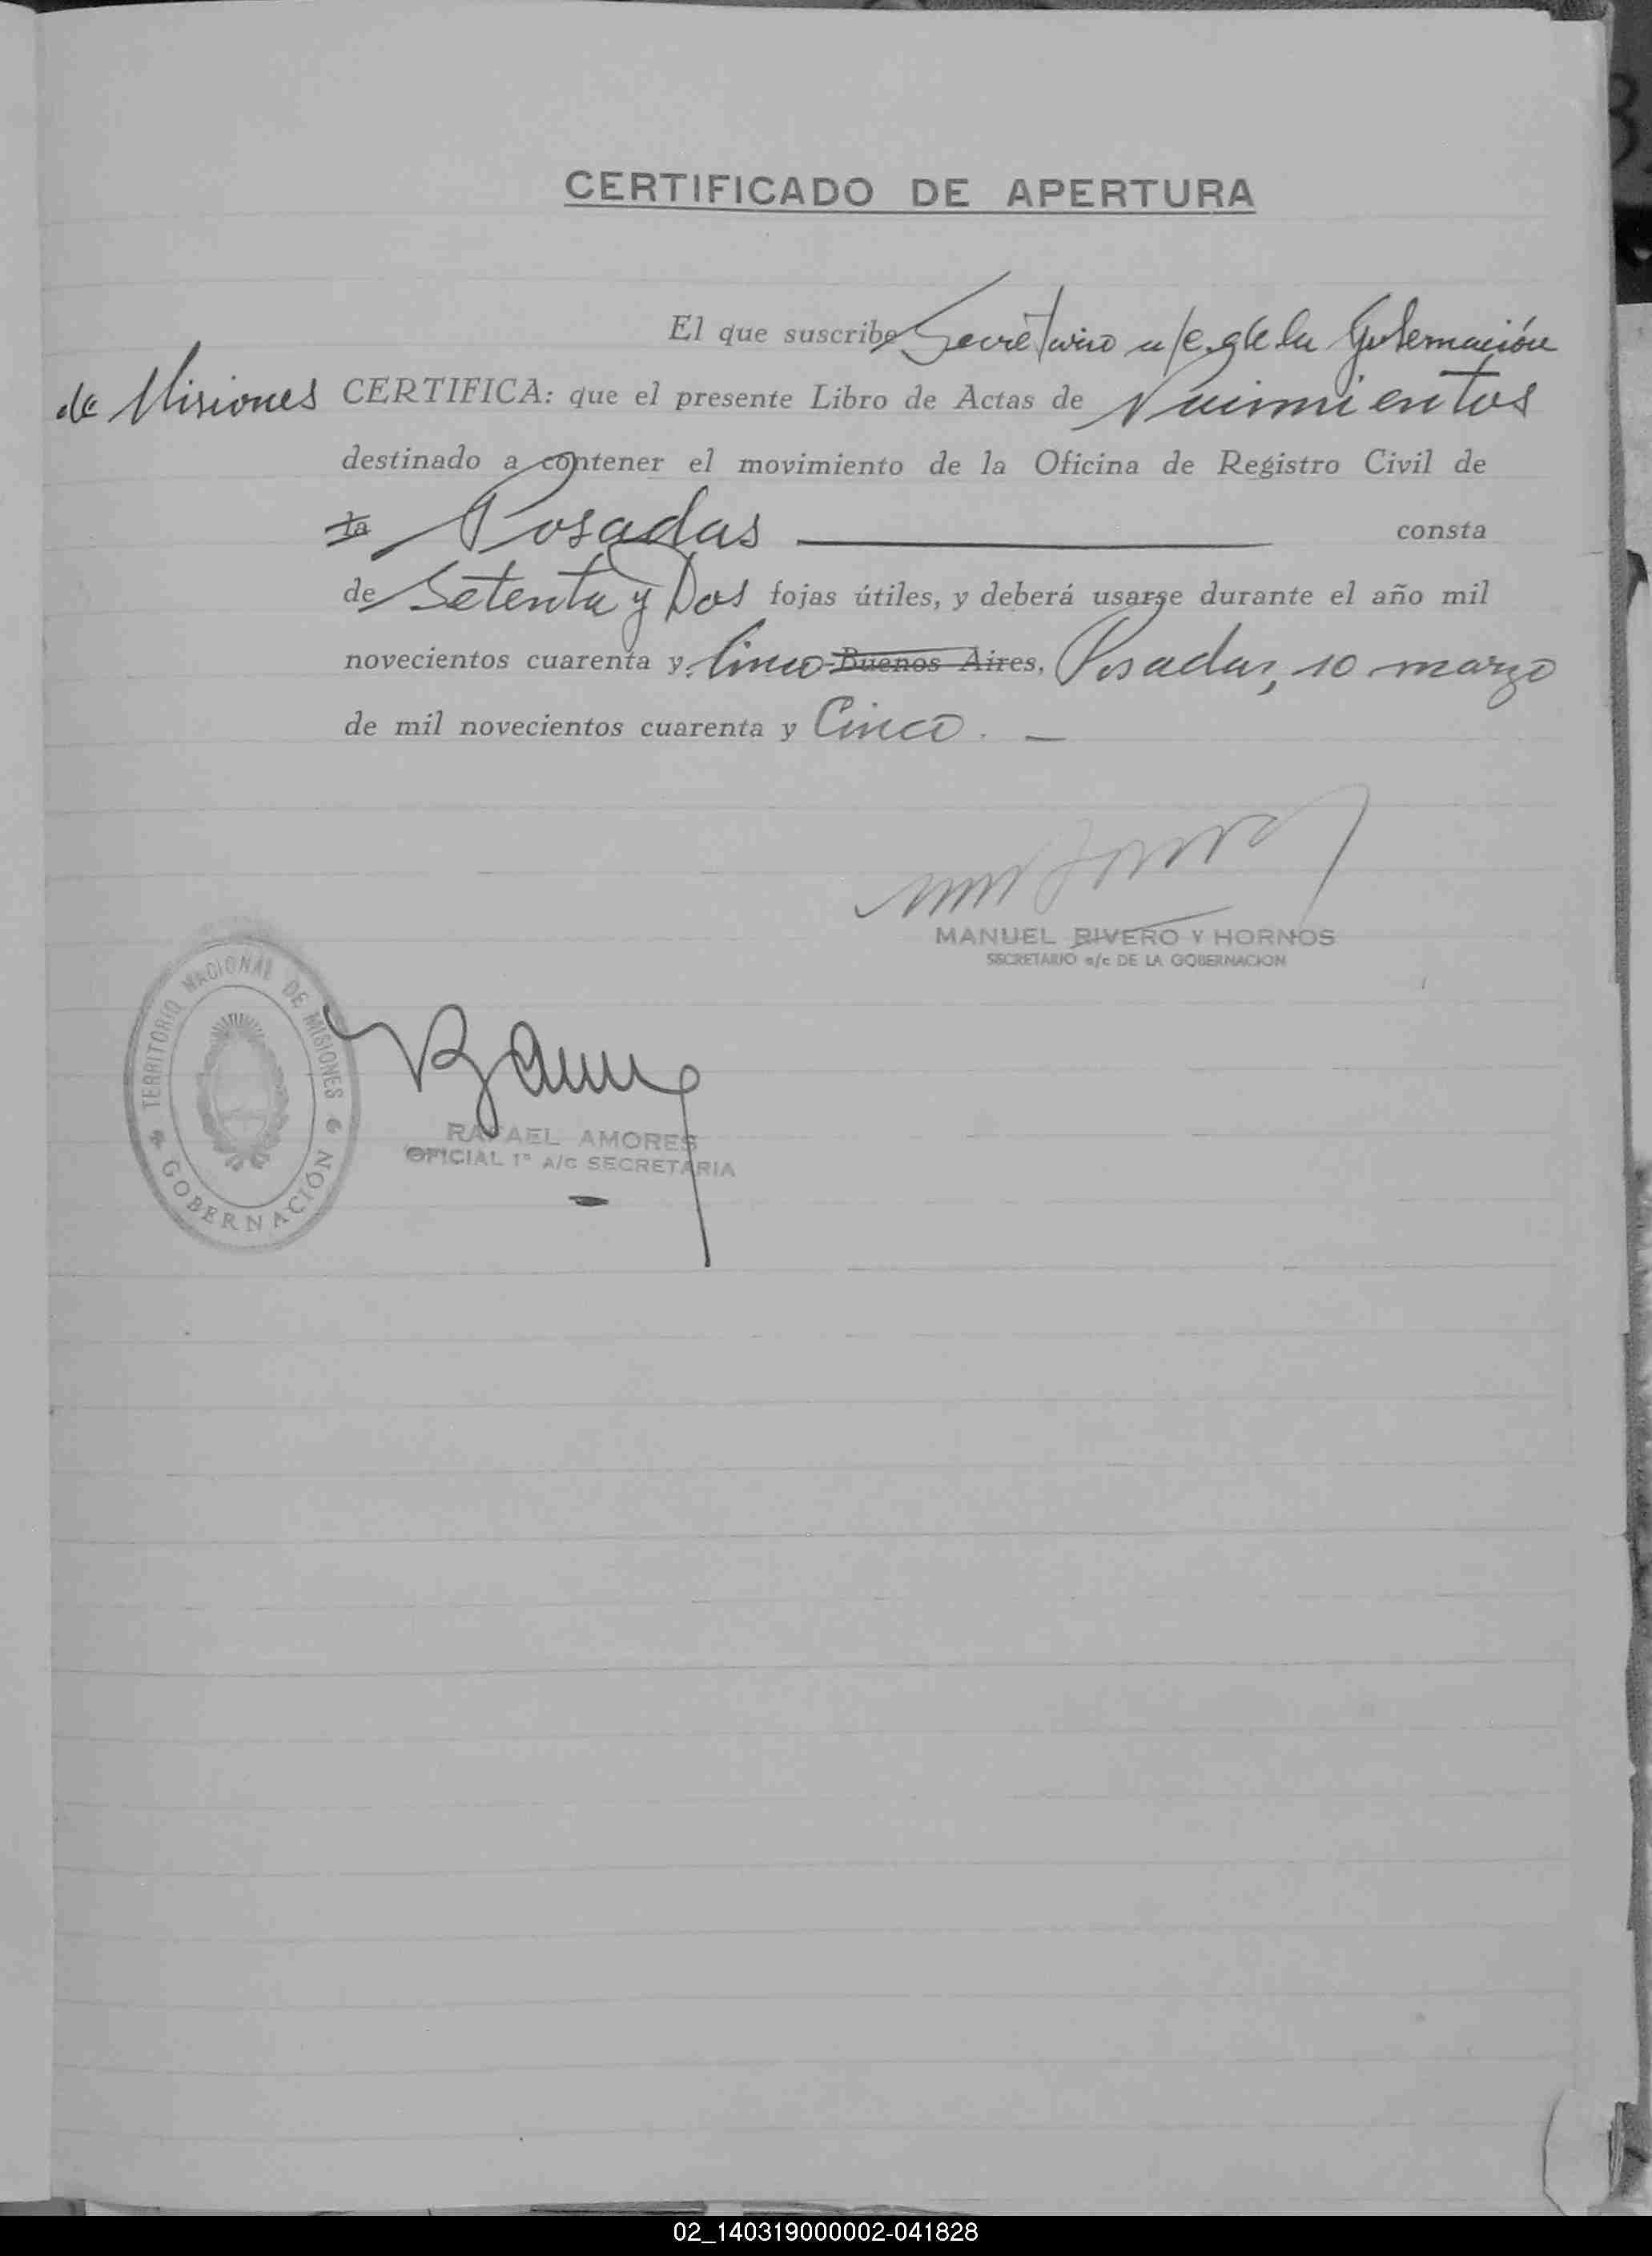 CERTIFICADO DE APERTURA
El que suscribe Secretario a/c. de la Gobernación
de Misiones CERTIFICA: que el presente Libro de Actas de Nacimientos
destinado a contener el movimiento de la Oficina de Registro Civil de
la Posadas consta
de Setenta y Dos fojas útiles, y deberá usarse durante el año mil
novecientos cuarenta y Cinco Buenos Aires, Posadas, 10 marzo
de mil novecientos cuarenta y Cinco.
MANUEL RIVERO Y HORNOS
SECRETARIO a/c DE LA GOBERNACION
TERRITORIO NACIONAL DE MISIONES
GOBERNACIÓN
RAFAEL AMORES
OFICIAL 1º A/C SECRETARIA
02_140319000002-041828